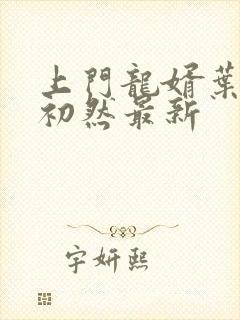 上門龍婿葉
初然最新
宇妍熙